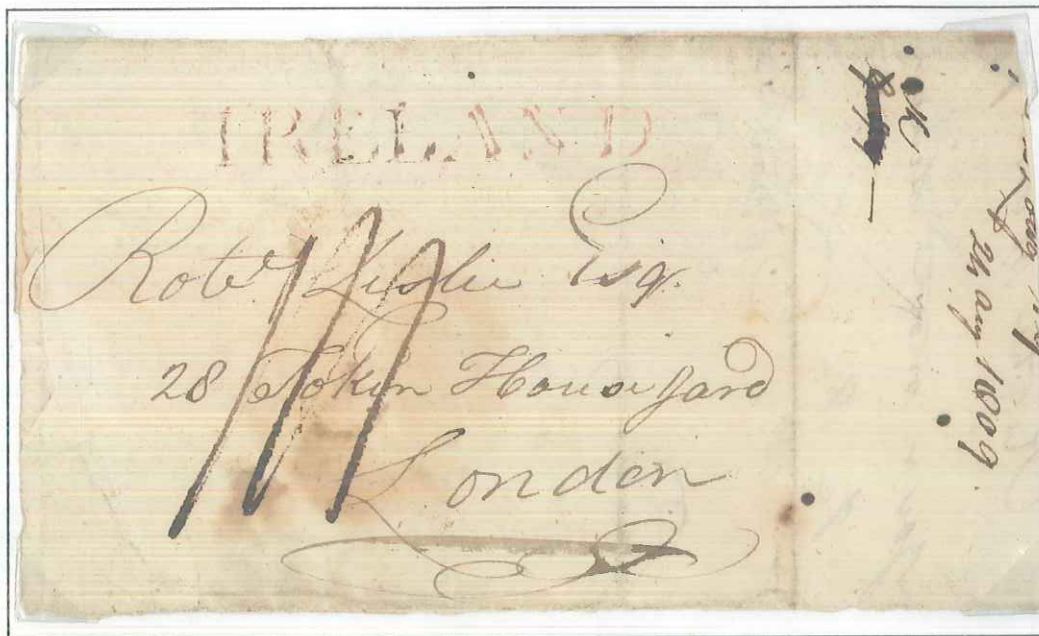 IRELAND
Robt Leslie Esq.
28 Token House Yard
London
24 Aug 1809